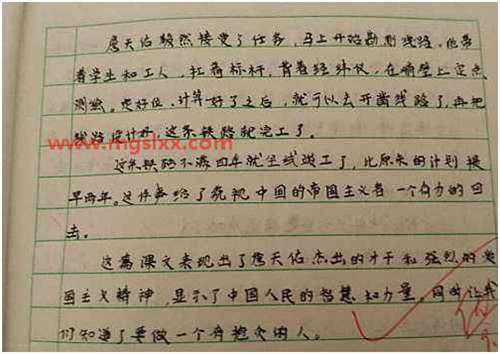 詹天佑毅然接受了任务，马上开始勘测线路。他带
着学生和工人，扛着标杆，背着经纬仪，在峭壁上定点
测绘。定好位、计算好了之后，就可以去开凿线路了，再把
线路设计好，这条铁路就完工了。
www.mgslxx.com
这条铁路不满四年就全线竣工了，比原来的计划提
早两年。这件事给了藐视中国的帝国主义者一个有力的回
击。
这篇课文表现出了詹天佑杰出的才干和强烈的爱
国主义精神，显示了中国人民的智慧和力量。同时让我
们知道了要做一个有抱负的人。